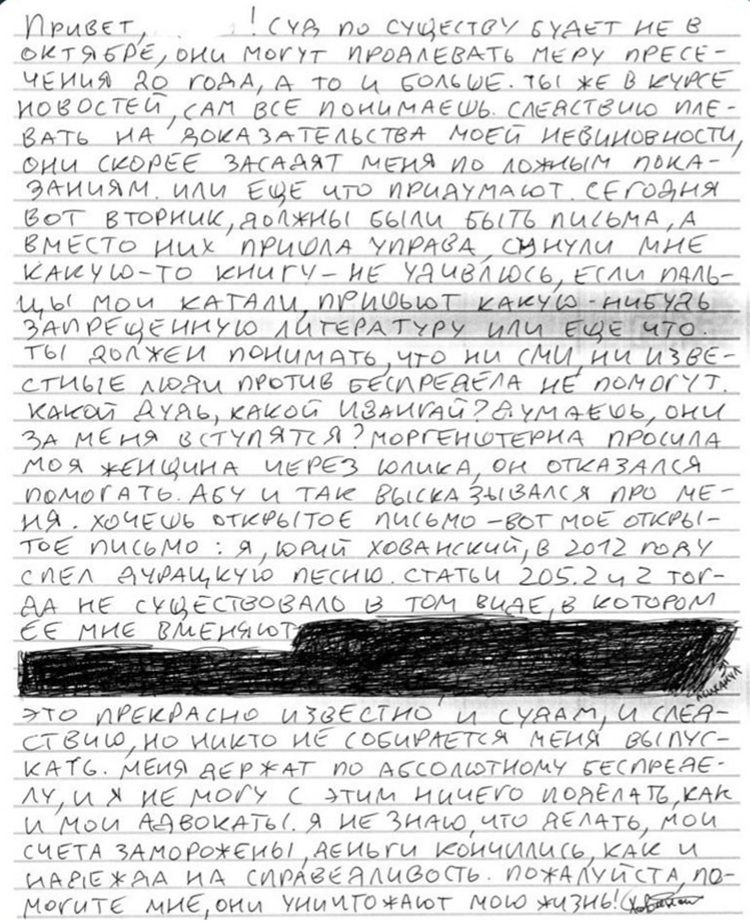 Привет, ! Суд по существу будет не в
октябре, они могут продлевать меру пресе-
чения до года, а то и больше. Ты же в курсе
новостей, сам все понимаешь. Следствию пле-
вать на доказательства моей невиновности,
они скорее засадят меня по ложным пока-
заниям. Или еще что придумают. Сегодня
вот вторник, должны были быть письма, а
вместо них пришла управа, сунули мне
какую-то книгу – не удивлюсь, если паль-
цы мои катали, пришьют какую-нибудь
запрещенную литературу или еще что.
Ты должен понимать, что ни СМИ, ни изве-
стные люди против беспредела не помогут.
Какой Дудь, какой Ивангай? Думаешь, они
за меня вступятся? Моргенштерна просила
моя женщина через Юлика, он отказался
помогать. Абу и так высказывался про ме-
ня. Хочешь открытое письмо – вот мое откры-
тое письмо: я, Юрий Хованский, в 2012 году
спел дурацкую песню. Статьи 205.2 ч 2 тог-
да не существовало в том виде, в котором
ее мне вменяют
Я
психанул
Это прекрасно известно и судам, и след-
ствию, но никто не собирается меня выпус-
кать. Меня держат по абсолютному беспреде-
лу, и я не могу с этим ничего поделать, как
и мои адвокаты. Я не знаю, что делать, мои
счета заморожены, деньги кончились, как и
надежда на справедливость. Пожалуйста, по-
могите мне, они уничтожают мою жизнь!